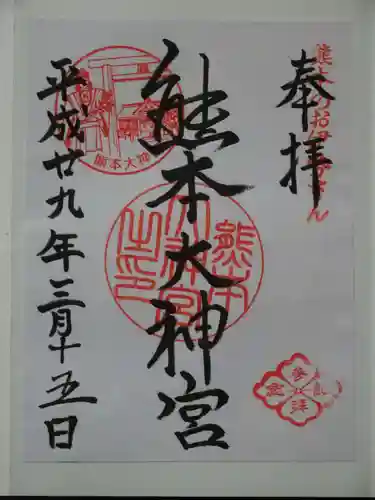 奉拝
熊本大神宮
平成廿九年三月十五日
熊本大神宮
熊本大神宮之印